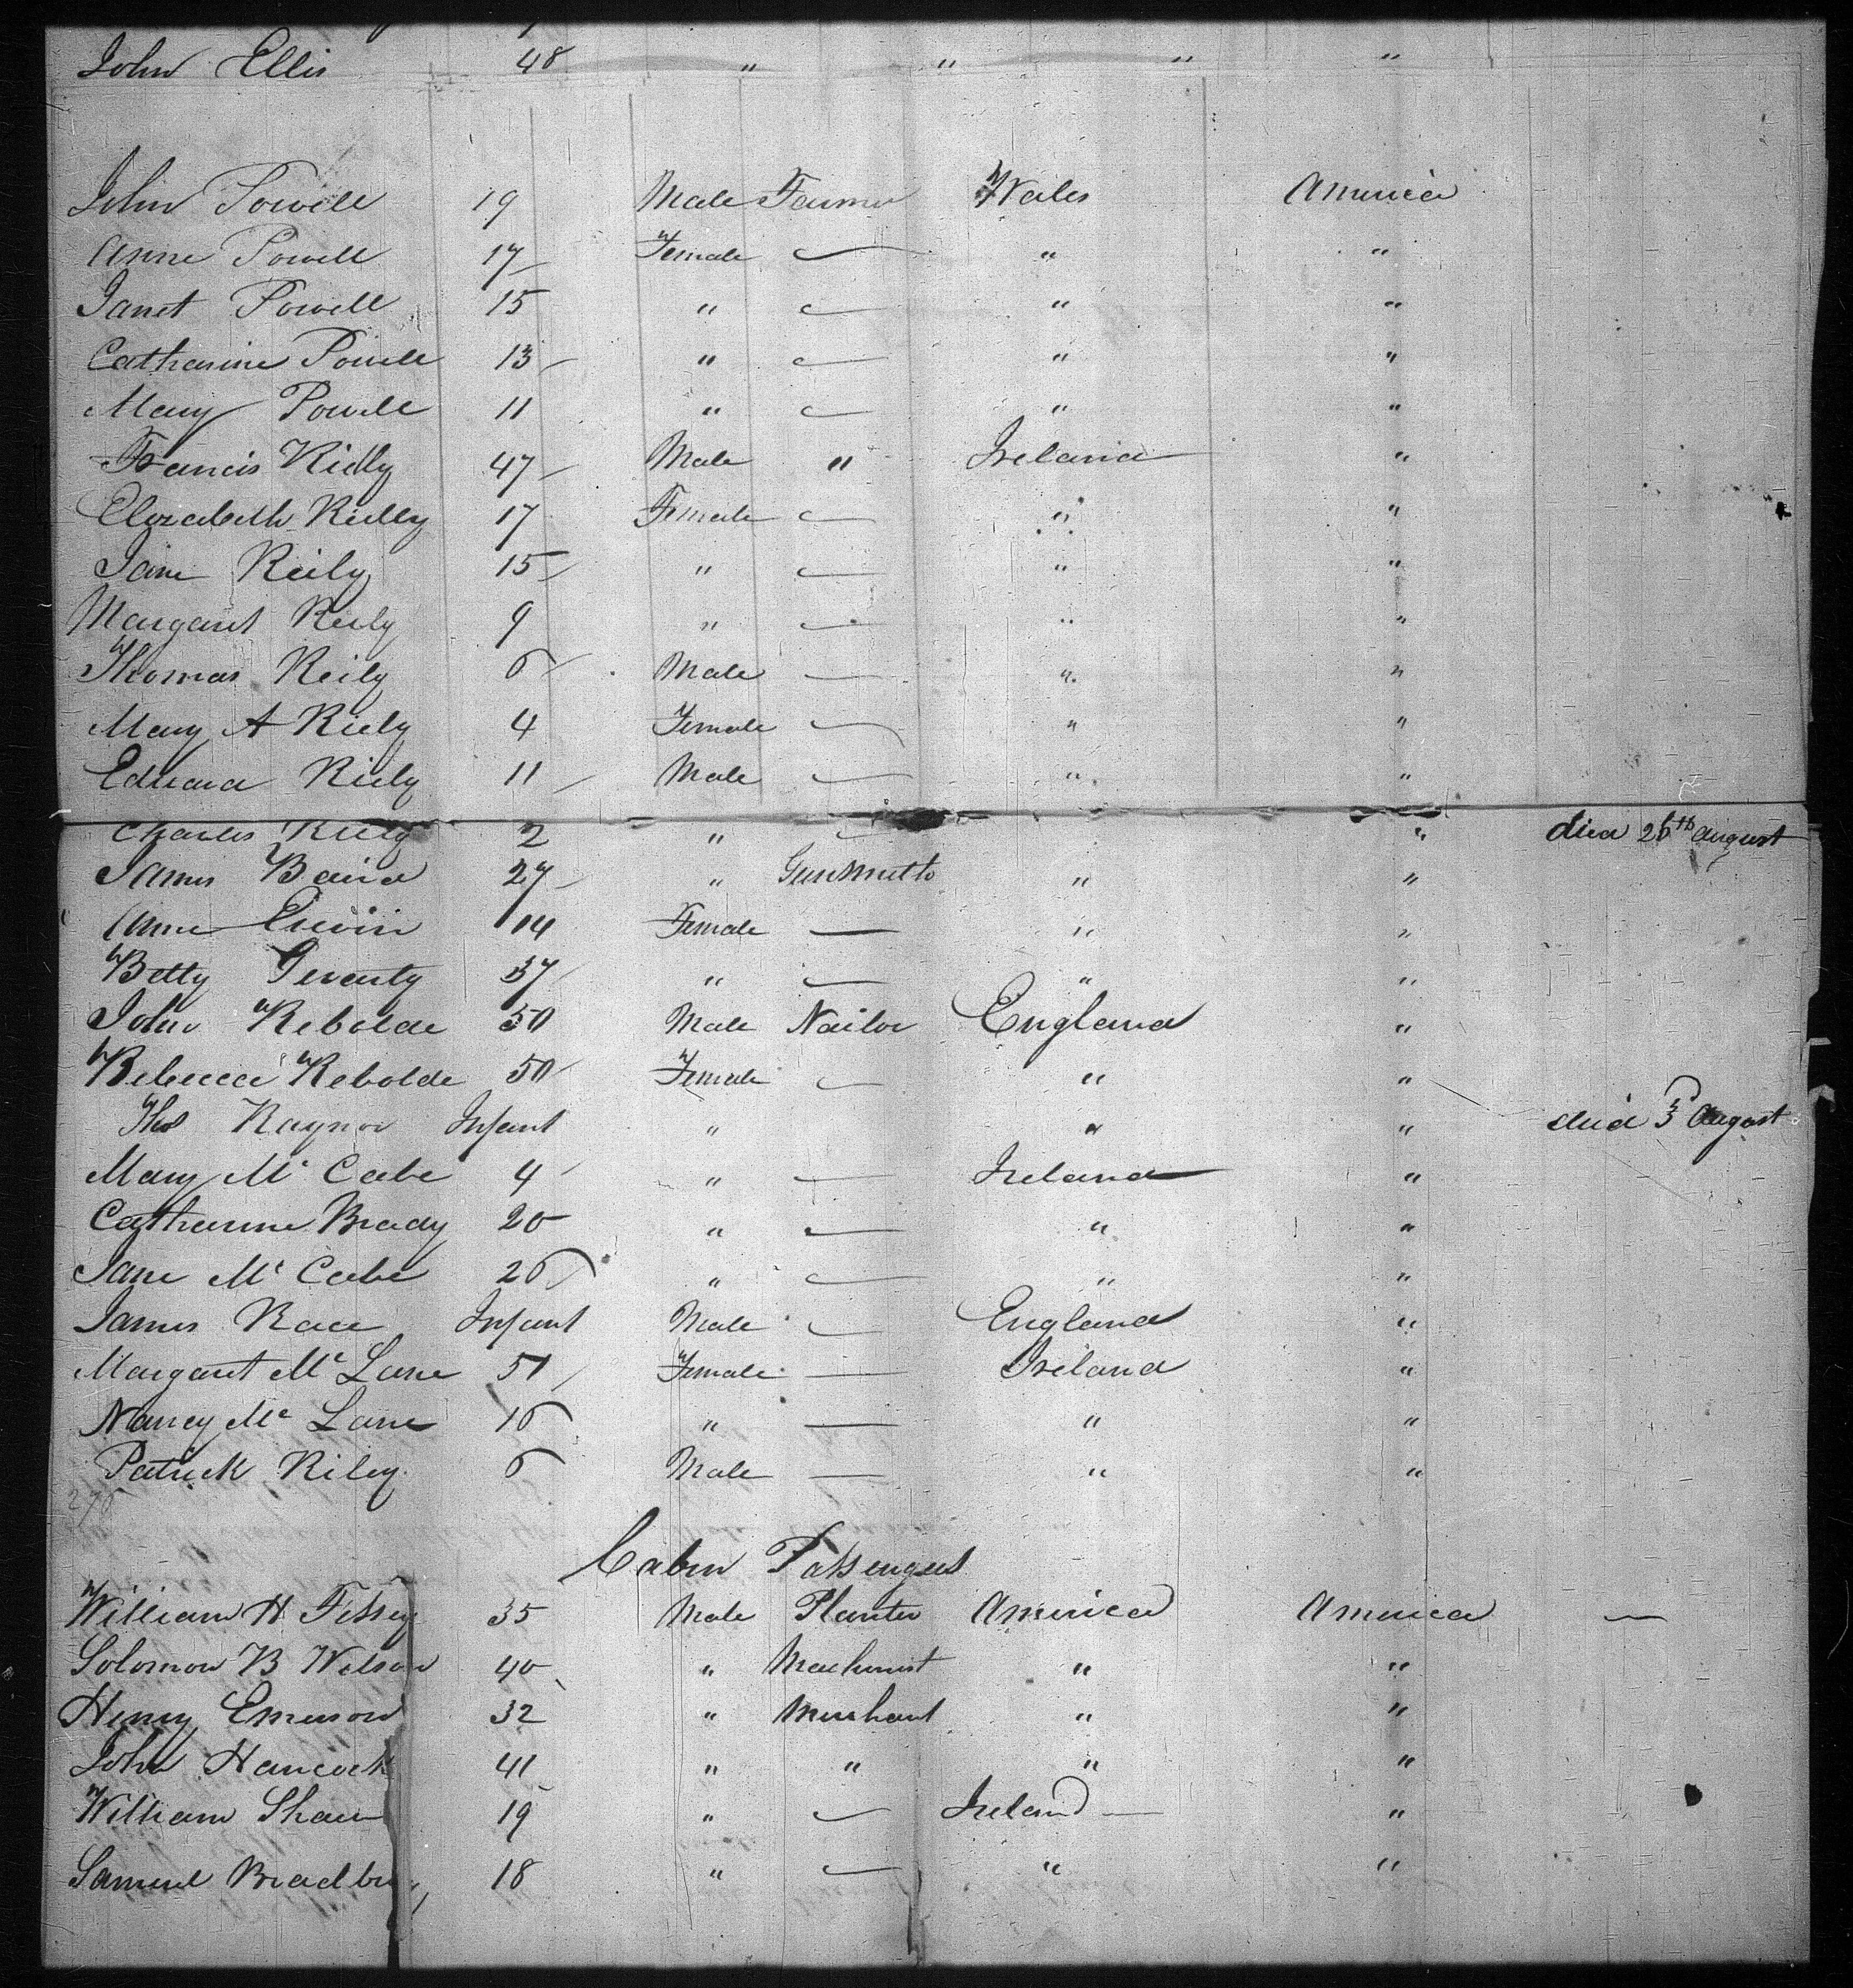 John Ellis 48 " " " "
John Powell 19 Male Farmer Wales America
Anne Powell 17 Female — " "
Janet Powell 15 " — " "
Catharine Powell 13 " — " "
Mary Powell 11 " — " "
Francis Rielly 47 Male " Ireland "
Elizabeth Rielly 17 Female — " "
Jane Reily 15 " — " "
Margaret Reily 9 " — " "
Thomas Reily 6 Male — " "
Mary A Riely 4 Female — " "
Edward Riely 11 Male — " "
Charles Riely 2 " — " died 26th August
James Baird 27 " " "
Anne 14 Female — " "
Betty 37 " — " "
John Rebolde 50 Male Nailor England "
Rebecca Rebolde 50 Female — " "
Thos Raynor Infant " " " died 3d August
Mary Mc Cabe 4 " — Ireland "
Catharine Brady 20 " — " "
Jane Mc Cabe 26 " — " "
James Race Infant Male — England "
Margaret Mc Lane 51 Female — Ireland "
Nancy Mc Lane 16 " — " "
Patrick Riley 6 Male — " "
276
Cabin Passengers
William H 35 Male Planter America America —
Solomon B Wilson 40 " Machinist " "
Henry Emerson 32 " Merchant " "
John Hancock 41 " " " "
William Shaw 19 " — Ireland — "
Samuel Bradbury 18 " — " "